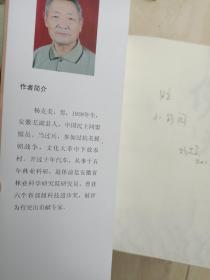 作者简介
杨克美,男,1939年生,
安徽芜湖县人,中国民主同盟
盟员。当过兵,参加过抗美援
朝战争,文化大革中下放农
村,开过十年汽车,从事十五
年林业科研,退休前是安徽省
林业科学研究院研究员,曾获
六个省部级科技进步奖,被评
为有突出贡献专家。